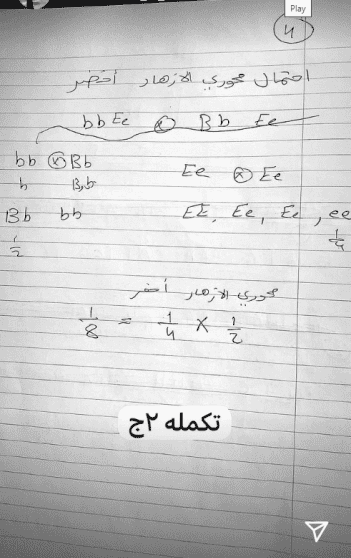 Play
4
احتمال محوري الازهار أخضر
bb Ee ⊗ Bb Ee
bb ⊗ Bb
b B,b
Bb bb
1/2
Ee ⊗ Ee
EE, Ee, Ee, ee
1/4
محوري الازهار أخضر
1/8 = 1/4 × 1/2
تكمله ٢ج